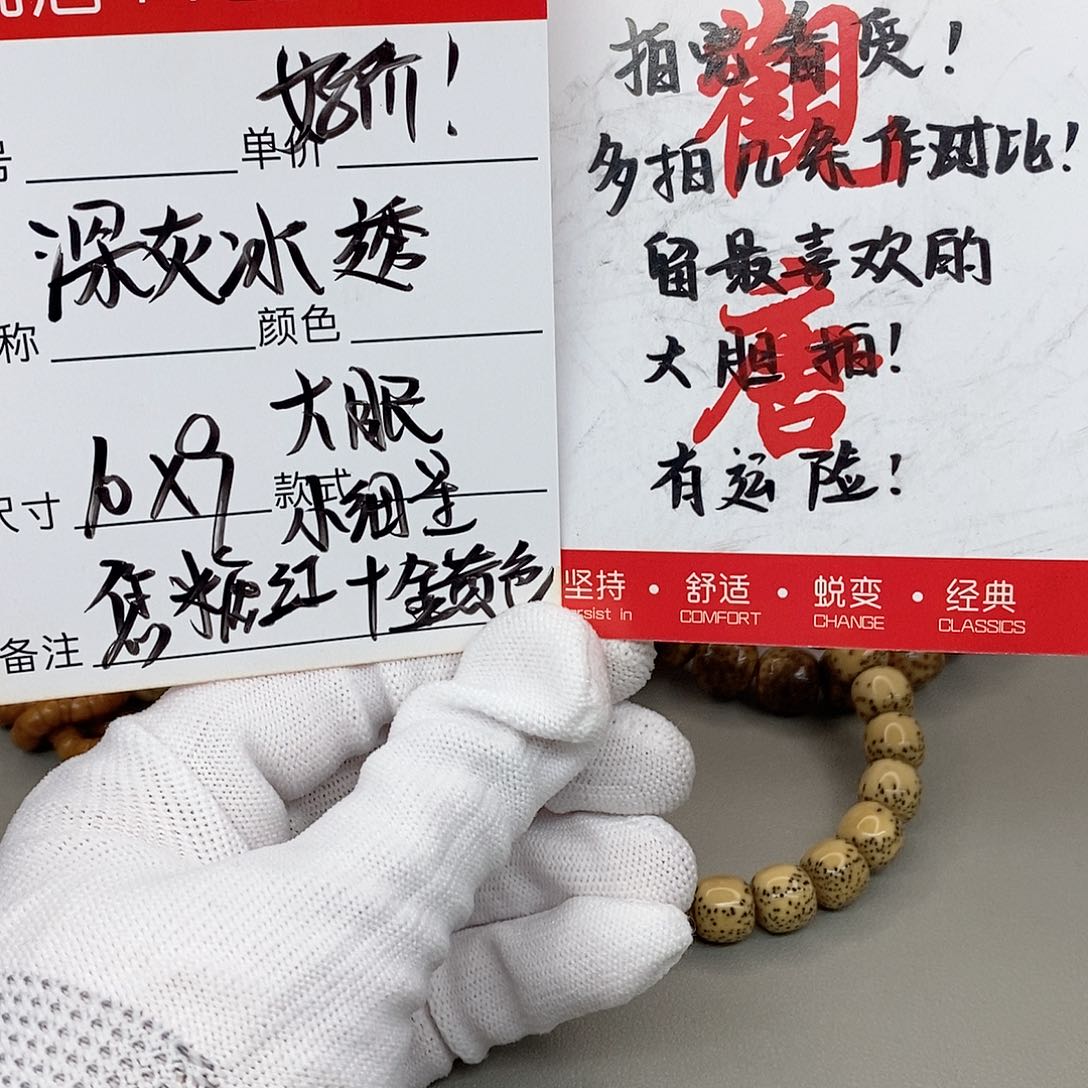 好价！
号 单价
深灰冰透
称 颜色
大眼
6X9
尺寸 款式
水细茔
焦糖红+金黄色
备注
拍完看货！
多拍几条作对比！
留最喜欢的
大胆拍！
有运险！
觀唐
坚持 · 舒适 · 蜕变 · 经典
rsist in COMFORT CHANGE CLASSICS